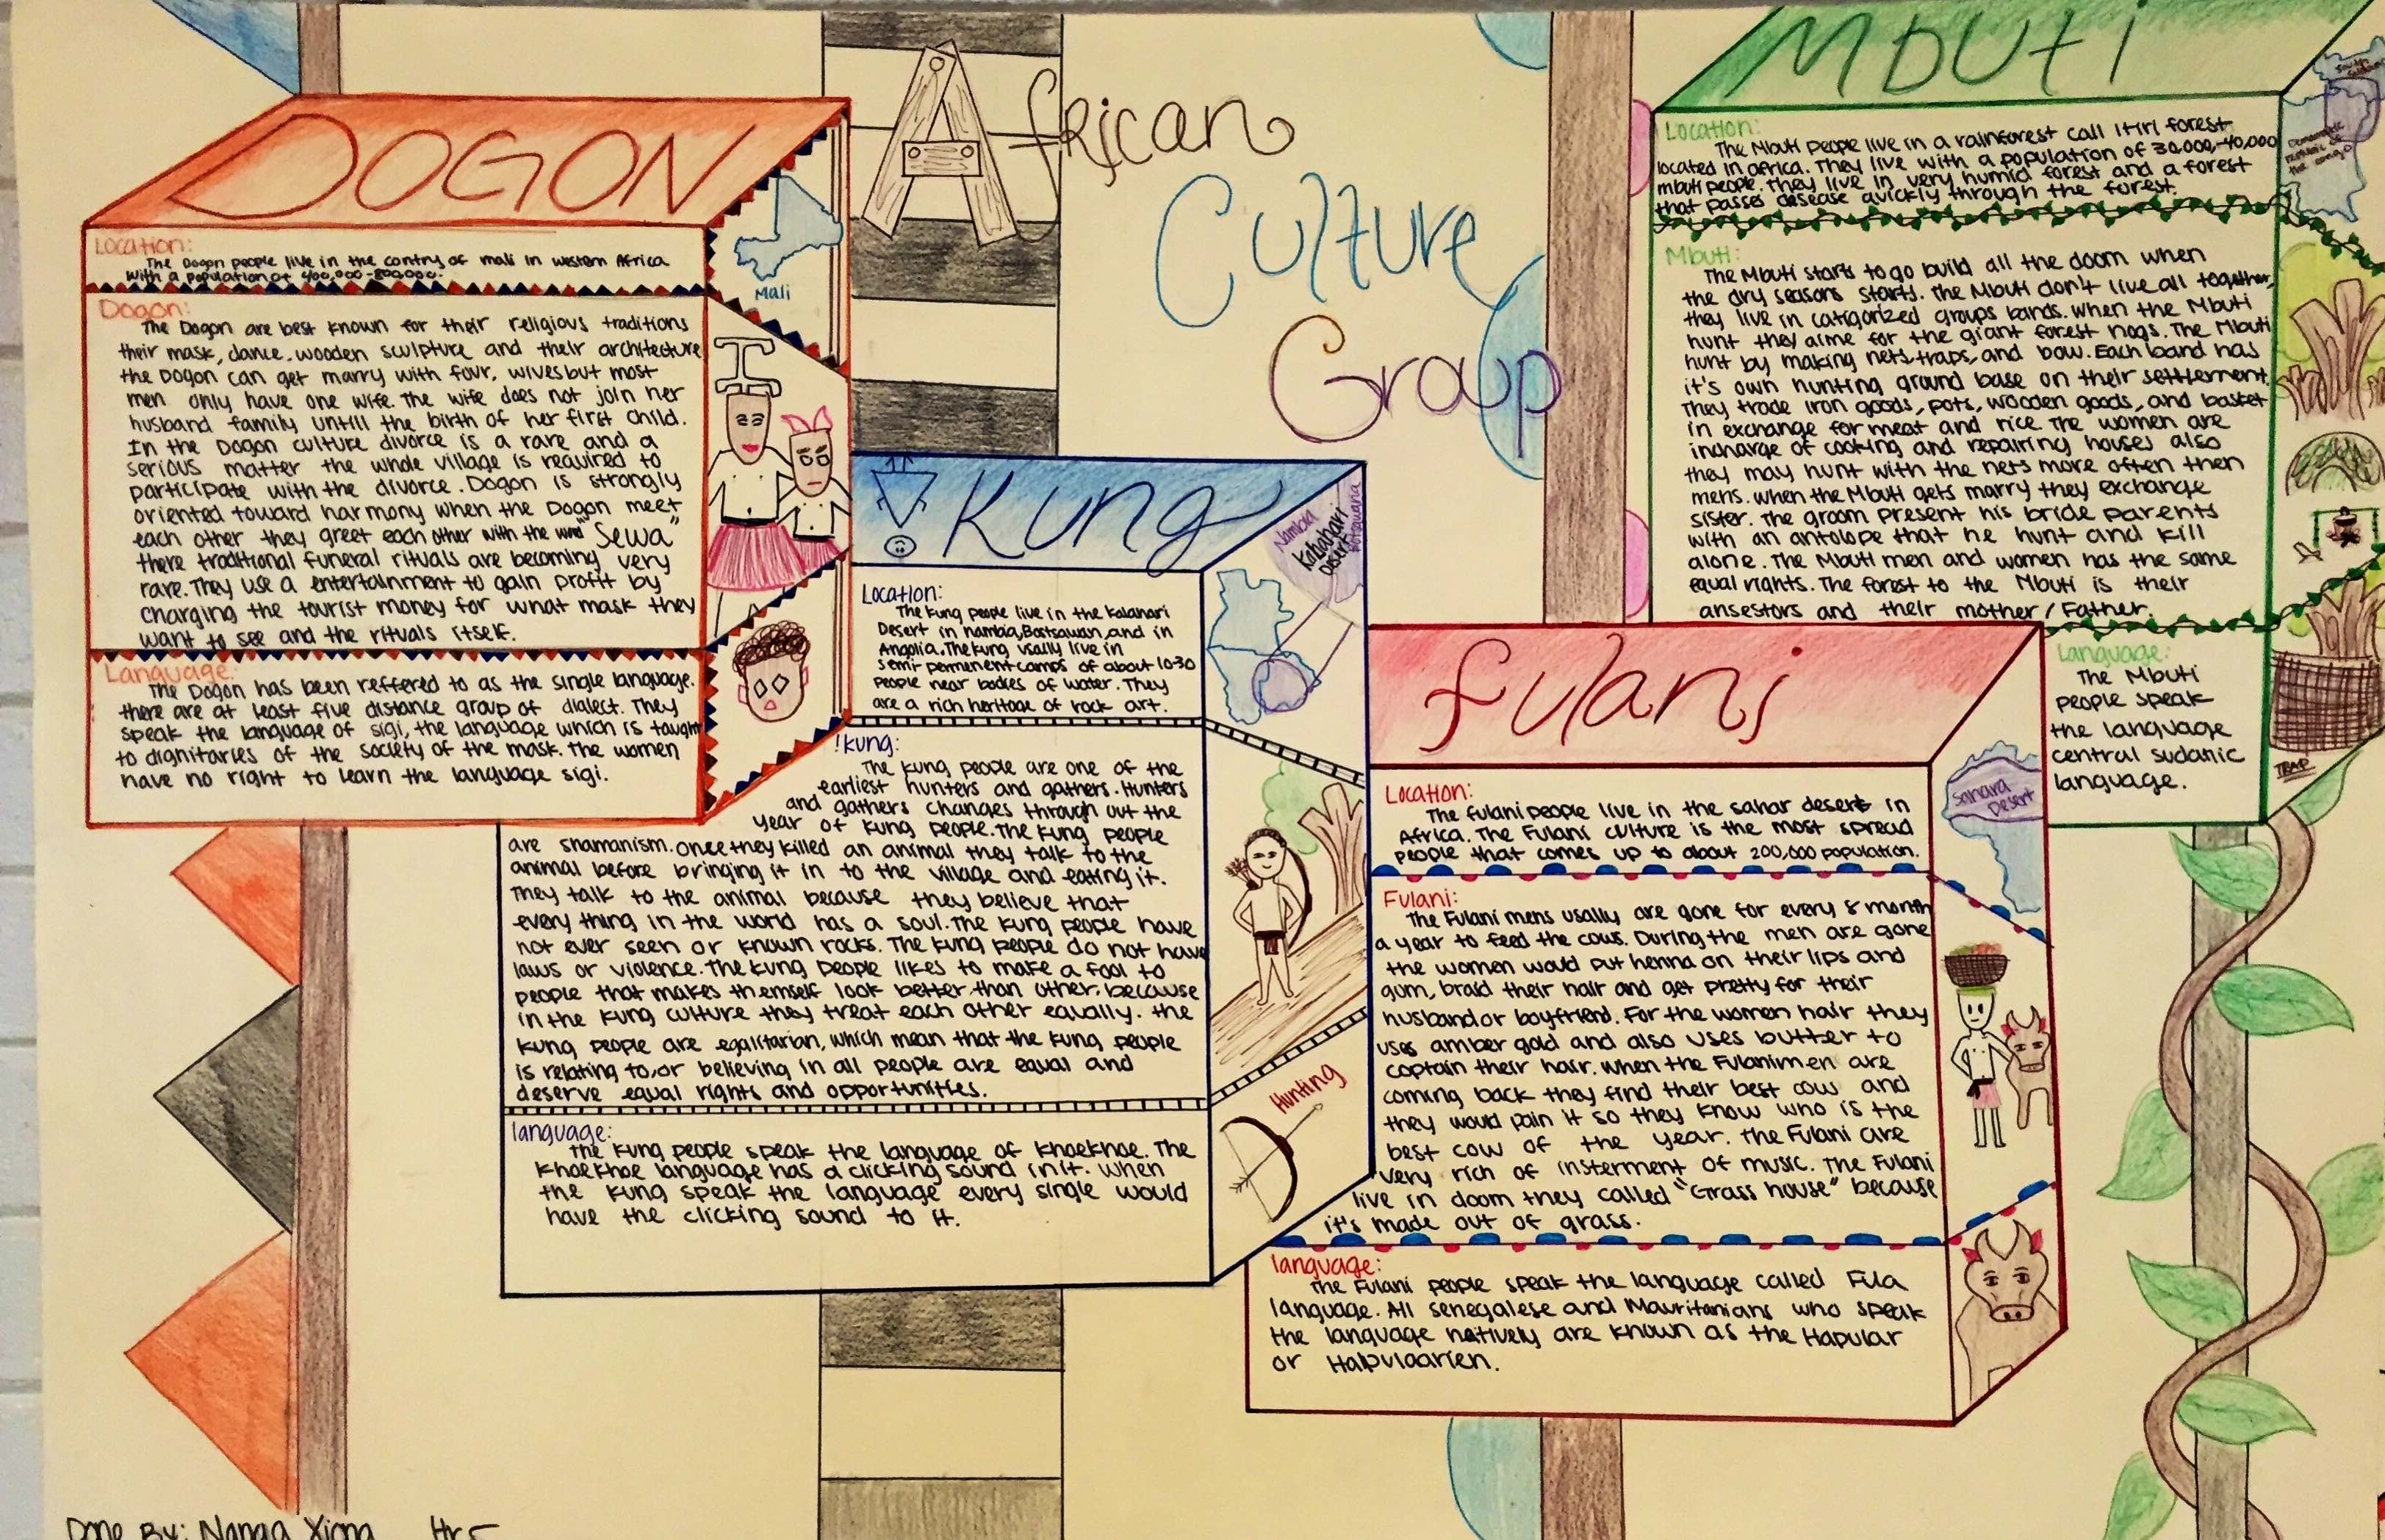 African
Culture
Group
DOGON
Location:
The Dogon people live in the contry of mali in western Africa
with a population of 400,000-800,000.
Dogon:
The Dogon are best known for their religious traditions
their mask, dance, wooden sculpture and their architecture
the Dogon can get marry with four, wives but most
men only have one wife. The wife does not join her
husband family untill the birth of her first child.
In the Dogon culture divorce is a rare and a
serious matter the whole village is required to
participate with the divorce. Dogon is strongly
oriented toward harmony when the Dogon meet
each other they greet each other with the word "Sewa"
there traditional funeral rituals are becoming very
rare. They use a entertainment to gain profit by
charging the tourist money for what mask they
want to see and the rituals itself.
Language:
The Dogon has been reffered to as the single language.
there are at least five distance group of dialect. They
speak the language of sigi, the language which is taught
to dignitaries of the society of the mask. The women
have no right to learn the language sigi.
Mali
Kung
Location:
The Kung people live in the Kalahari
Desert in nambia, Bostsawan, and in
Angolia. The Kung usally live in
semi-permenent camps of about 10-30
people near bodies of water. They
are a rich heritage of rock art.
!Kung:
The Kung people are one of the
earliest hunters and gathers. Hunters
and gathers changes through out the
year of Kung people. The Kung people
are shamanism. once they killed an animal they talk to the
animal before bringing it in to the village and eating it.
They talk to the animal because they believe that
every thing in the world has a soul. The Kung people have
not ever seen or known rocks. The Kung people do not have
laws or violence. The Kung people likes to make a fool to
people that makes themself look better than other, because
in the Kung culture they treat each other equally. the
Kung people are egalitarian, which mean that the Kung people
is relating to, or believing in all people are equal and
deserve equal rights and opportunities.
language:
the Kung people speak the language of Khoekhoe. The
Khoekhoe language has a clicking sound in it. when
the Kung speak the language every single would
have the clicking sound to it.
Nambia
Kahahari
Desert
Botsawana
Hunting
Fulani
Location:
The fulani people live in the sahar desert in
Africa. The Fulani culture is the most spread
people that comes up to about 200,000 population.
Fulani:
The Fulani mens usally are gone for every 8 month
a year to feed the cows. During the men are gone
the women would put henna on their lips and
gum, braid their hair and get pretty for their
husband or boyfriend. For the women hair they
uses amber gold and also uses butter to
captain their hair. when the Fulani men are
coming back they find their best cow and
they would pain it so they know who is the
best cow of the year. the Fulani are
very rich of insterment of music. The Fulani
live in doom they called "Grass house" because
it's made out of grass.
language:
The Fulani people speak the language called Fula
language. All senegalese and Mauritanians who speak
the language natively are known as the Hapular
or Halpulaarien.
Sahara
Desert
Mbuti
Location:
The Mbuti people live in a rainforest call Itiri forest
located in africa. They live with a population of 30,000,-40,000
mbuti people. they live in very humid forest and a forest
that passes desease quickly through the forest.
Mbuti:
The Mbuti starts to go build all the doom when
the dry seasons starts. The Mbuti don't live all together,
they live in catigorized groups bands. when the Mbuti
hunt they aime for the giant forest hogs. The Mbuti
hunt by making nets, traps, and bow. Each band has
it's own hunting ground base on their settlement.
They trade iron goods, pots, wooden goods, and basket
in exchange for meat and rice. The women are
incharge of cooking and repairing houses also
they may hunt with the nets more often then
mens. when the Mbuti gets marry they exchange
sister. The groom present his bride parents
with an antolope that he hunt and kill
alone. The Mbuti men and women has the same
equal rights. The forest to the Mbuti is their
ansestors and their mother/Father.
Language:
The Mbuti
people speak
the language
central sudanic
language.
Democratic
republic of
the congo
TRAP
Done By: Nanga Xiong Hr 5